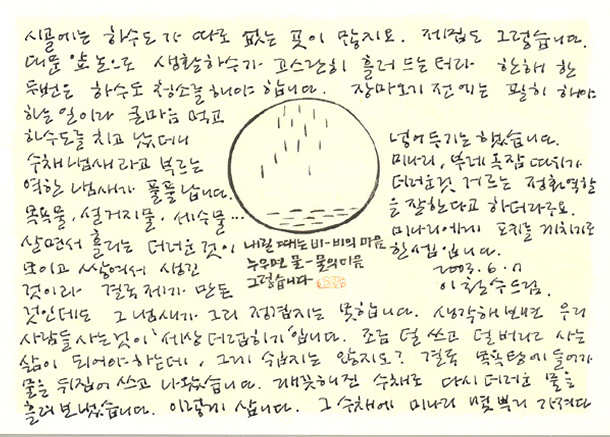 시골에는 하수도가 따로 없는 곳이 많지요. 제집도 그렇습니다.
대문 앞 논으로 생활하수가 고스란히 흘러 드는 터라 한해 한
두번은 하수도 청소를 해야 합니다. 장마오기 전에는 필히 해야
하는 일이라 큰마음 먹고
하수도를 치고 났더니
수채냄새라고 부르는
역한 냄새가 풀풀 납니다.
목욕물·설거지물·세수물…
살면서 흘리는 더러운 것이
모이고 쌓여서 생긴
것이라 결국 제가 만든
것인데도 그 냄새가 그리 정겹지는 못합니다. 생각해보면 우리
사람들 사는 것이 '세상 더럽히기'입니다. 조금 덜 쓰고 덜 버리고 사는
삶이 되어야 하는데, 그게 쉽지는 않지요? 결국 목욕탕에 들어가
물을 뒤집어 쓰고 나왔습니다. 깨끗해진 수채로 다시 더러운 물을
흘려보냈습니다. 이렇게 삽니다. 그 수채에 미나리 몇 뿌리 가져다
넣어두기는 했습니다.
미나리, 부레옥잠 따위가
더러운것 거르는 정화역할
을 잘한다고 하더라구요.
미나리에게 끼치기로
한 셈입니다.
2003. 6. 7
이철수드림.
내릴 때는 비-비의 마음
누우면 물-물의 마음
그렇습니다